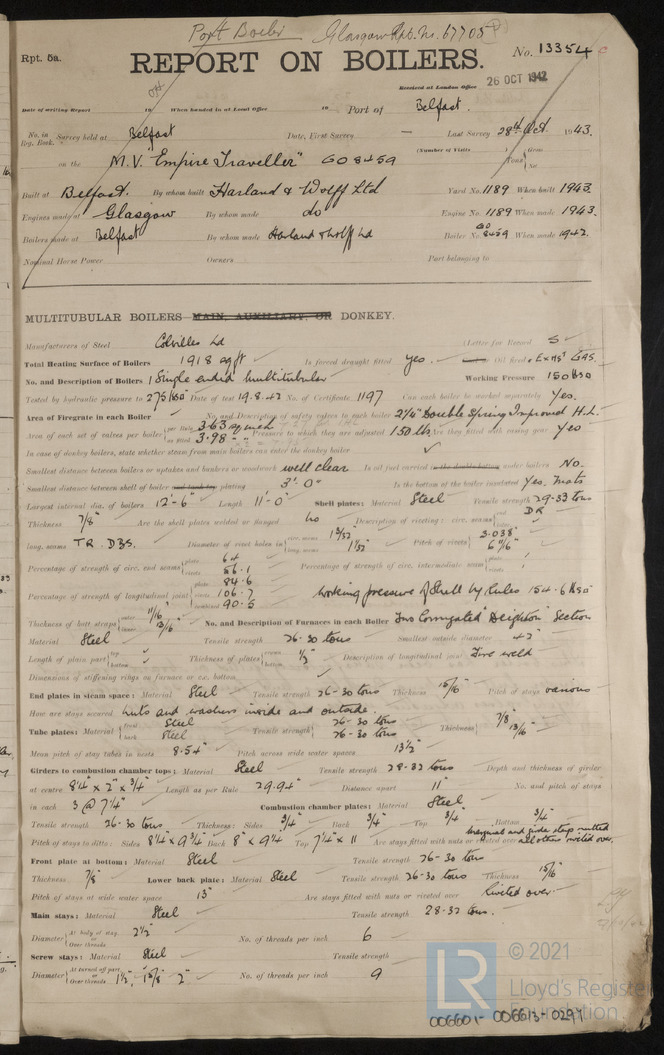 Port Boiler Glasgow Rpt. No. 67705
Rpt. 5a.
REPORT ON BOILERS.
No. 13354
Received at London Office
26 OCT 1942
Date of writing Report 19 When handed in at Local Office 19 Port of Belfast.
No. in Reg. Book. Survey held at Belfast Date, First Survey — Last Survey 28th Oct. 1943.
(Number of Visits
on the M.V. "Empire Traveller" GO 8459 Tons { Gross Net
Built at Belfast. By whom built Harland & Wolff Ltd Yard No. 1189 When built 1943.
Engines made at Glasgow By whom made do Engine No. 1189 When made 1943.
Boilers made at Belfast By whom made Harland & Wolff Ltd Boiler No. GO 8459 When made 1942.
Nominal Horse Power Owners Port belonging to
MULTITUBULAR BOILERS MAIN, AUXILIARY, OR DONKEY.
Manufacturers of Steel Colvilles Ld (Letter for Record S
Total Heating Surface of Boilers 1918 sq ft Is forced draught fitted yes. Oil fired & Exhst Gas.
No. and Description of Boilers 1 Single ended multitubular Working Pressure 150 lbs
Tested by hydraulic pressure to 275 lbs Date of test 19.8.42 No. of Certificate 1197 Can each boiler be worked separately Yes.
Area of Firegrate in each Boiler No. and Description of safety valves to each boiler 2¼" Double Spring Improved H.L.
Area of each set of valves per boiler { per Rule 3.63 sq inch as fitted 3.98 " " Pressure to which they are adjusted 150 lbs Are they fitted with easing gear Yes
In case of donkey boilers, state whether steam from main boilers can enter the donkey boiler ✓
Smallest distance between boilers or uptakes and bunkers or woodwork well clear Is oil fuel carried in the double bottom under boilers No.
Smallest distance between shell of boiler and tank top plating 3'-0" Is the bottom of the boiler insulated Yes. mats
Largest internal dia. of boilers 12'-6" Length 11'-0" Shell plates: Material Steel Tensile strength 29-33 tons
Thickness 7/8" Are the shell plates welded or flanged No Description of riveting: circ. seams { end DR inter.
long. seams TR. DBS. Diameter of rivet holes in { circ. seams long. seams 1 1/32" Pitch of rivets { 3.038" 6 11/16"
Percentage of strength of circ. end seams { plate 64 rivets 56.1 Percentage of strength of circ. intermediate seam { plate rivets
Percentage of strength of longitudinal joint { plate 84.6 rivets 106.7 combined 90.5 Working pressure of Shell by Rules 154.6 lbs
Thickness of butt straps { outer 11/16" inner 13/16" No. and Description of Furnaces in each Boiler Two Corrugated "Deighton" Section
Material Steel Tensile strength 26-30 tons Smallest outside diameter 42"
Length of plain part { top bottom Thickness of plates { crown bottom 1/2" Description of longitudinal joint Fire weld
Dimensions of stiffening rings on furnace or c.c. bottom ✓
End plates in steam space: Material Steel Tensile strength 26-30 tons Thickness 15/16" Pitch of stays various
How are stays secured nuts and washers inside and outside.
Tube plates: Material { front Steel back Steel Tensile strength { 26-30 tons 26-30 tons Thickness { 7/8 13/16"
Mean pitch of stay tubes in nests 8.54" Pitch across wide water spaces 13½"
Girders to combustion chamber tops: Material Steel Tensile strength 28-32 tons Depth and thickness of girder
at centre 8¼" x 2" x ¾" Length as per Rule 29.94" Distance apart 11" No. and pitch of stays
in each 3 @ 7¼" Combustion chamber plates: Material Steel
Tensile strength 26-30 tons Thickness: Sides ¾" Back ¾" Top ¾" Bottom ¾"
Pitch of stays to ditto: Sides 8¼" x 9¾" Back 8" x 9¼" Top 7¼" x 11 Are stays fitted with nuts or riveted over marginal and girder stays nutted all others riveted over.
Front plate at bottom: Material Steel Tensile strength 26-30 tons
Thickness 7/8" Lower back plate: Material Steel Tensile strength 26-30 tons Thickness 15/16"
Pitch of stays at wide water space 13" Are stays fitted with nuts or riveted over riveted over.
Main stays: Material Steel Tensile strength 28-32 tons.
Diameter { At body of stay, or Over threads 2½" No. of threads per inch 6
Screw stays: Material Steel Tensile strength
Diameter { At turned off part, or Over threads 1½", 1 5/8" 2" No. of threads per inch 9
LR
© 2021
Lloyd's Register
Foundation
006601-006613-0297